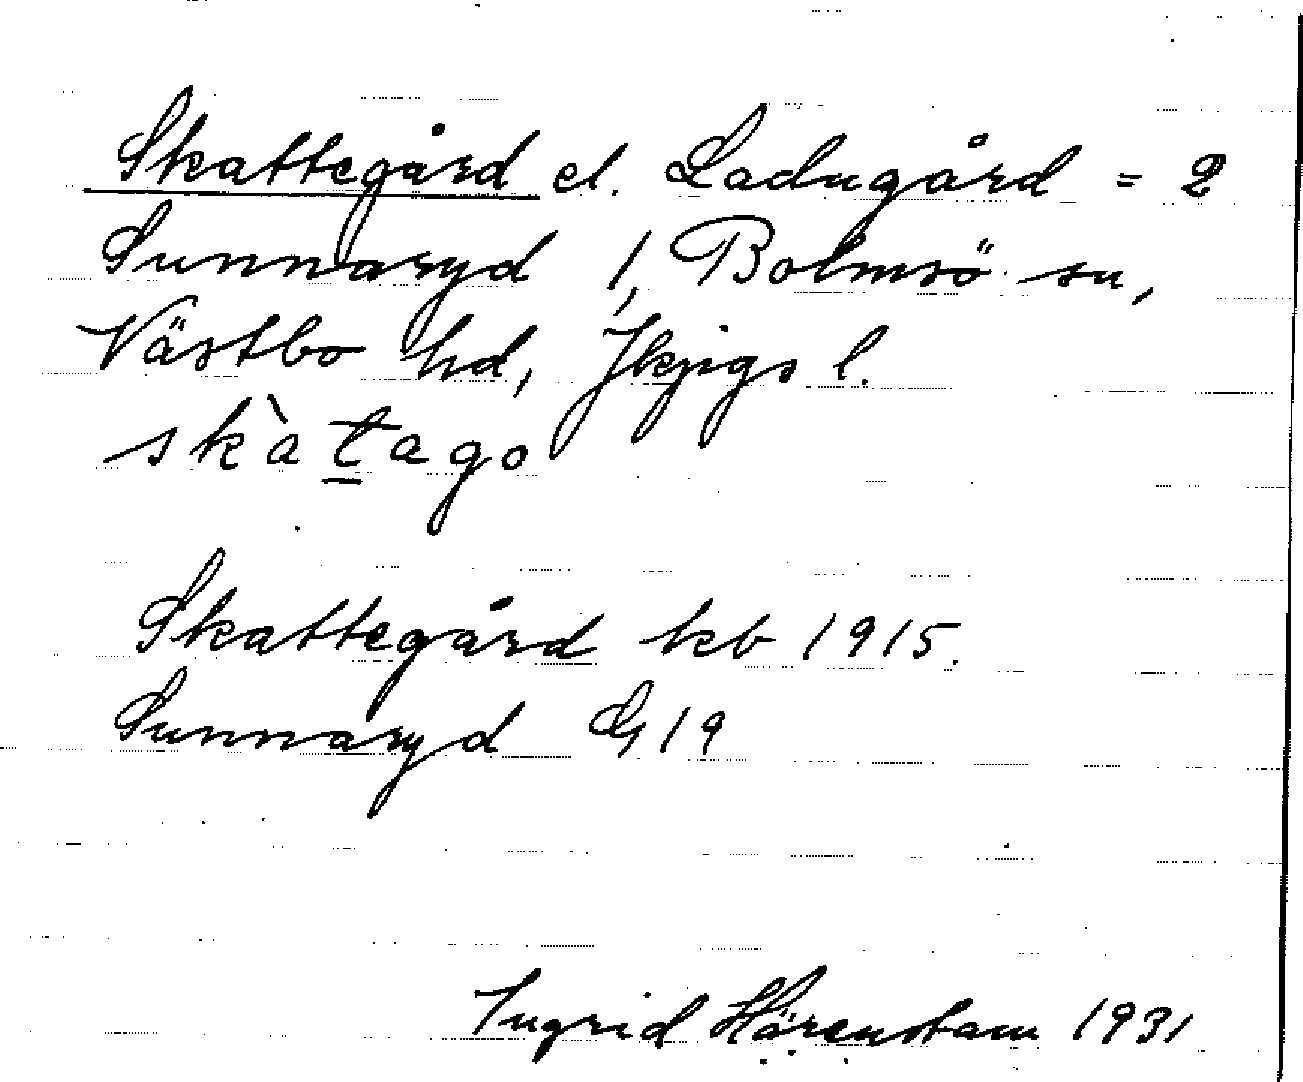 Skattegård el. Ladugård = 2
Sunnaryd 1, Bolmsö sn,
Västbo hd, Jkpgs l.
skàt̲ago
Skattegård kb 1915.
Sunnaryd G19
Ingrid Härenstam 1931